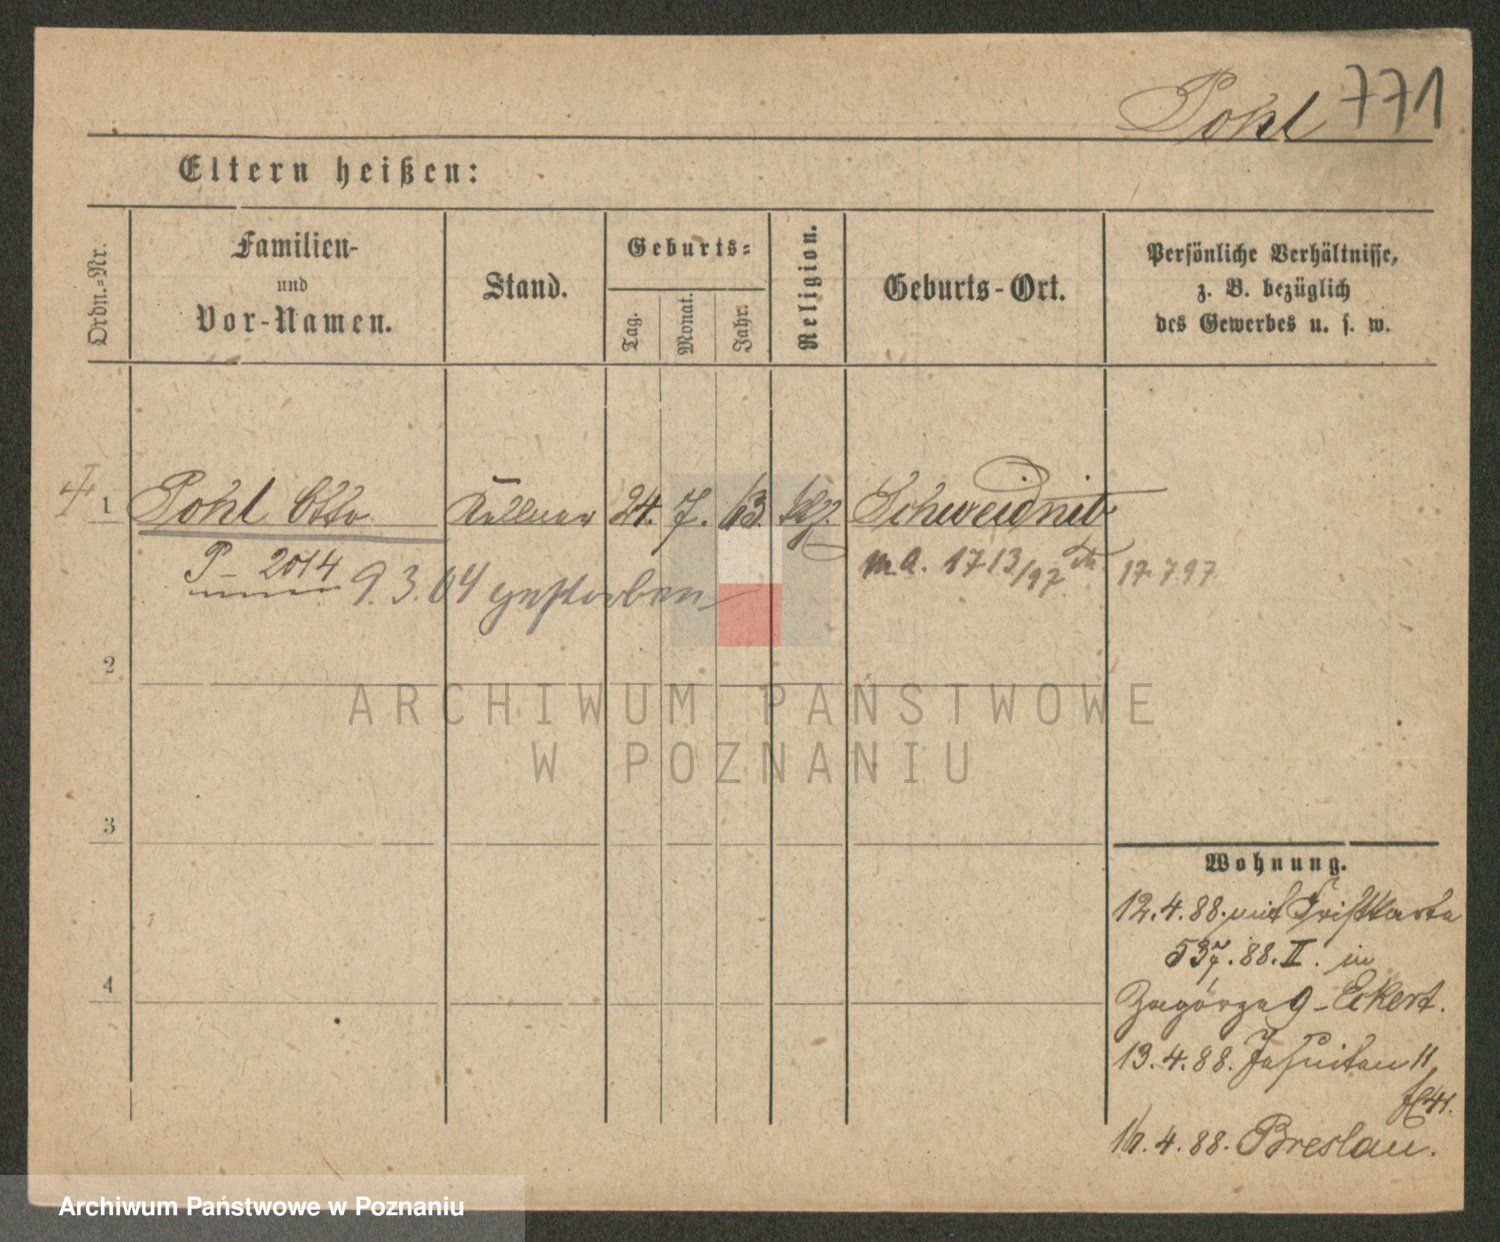 Pohl 771
Eltern heißen:
Ordn.-Nr.
Familien-
und
Vor-Namen.
Stand.
Geburts-
Tag.
Monat.
Jahr.
Religion.
Geburts-Ort.
Persönliche Verhältnisse,
z. B. bezüglich
des Gewerbes u. s. w.
1 Pohl Otto Kellner 24. 7. 63. Schweidnitz
P- 2014 9.3.04 gestorben
m.a. 1713/97 17.7.97
2
3
4
ARCHIWUM PAŃSTWOWE
W POZNANIU
Wohnung.
12.4.88. mit Fristkarte
537.88.II. in
Zagórze 9 - Eckert.
13.4.88. Jesuiten 11
16.4.88. Breslau.
Archiwum Państwowe w Poznaniu